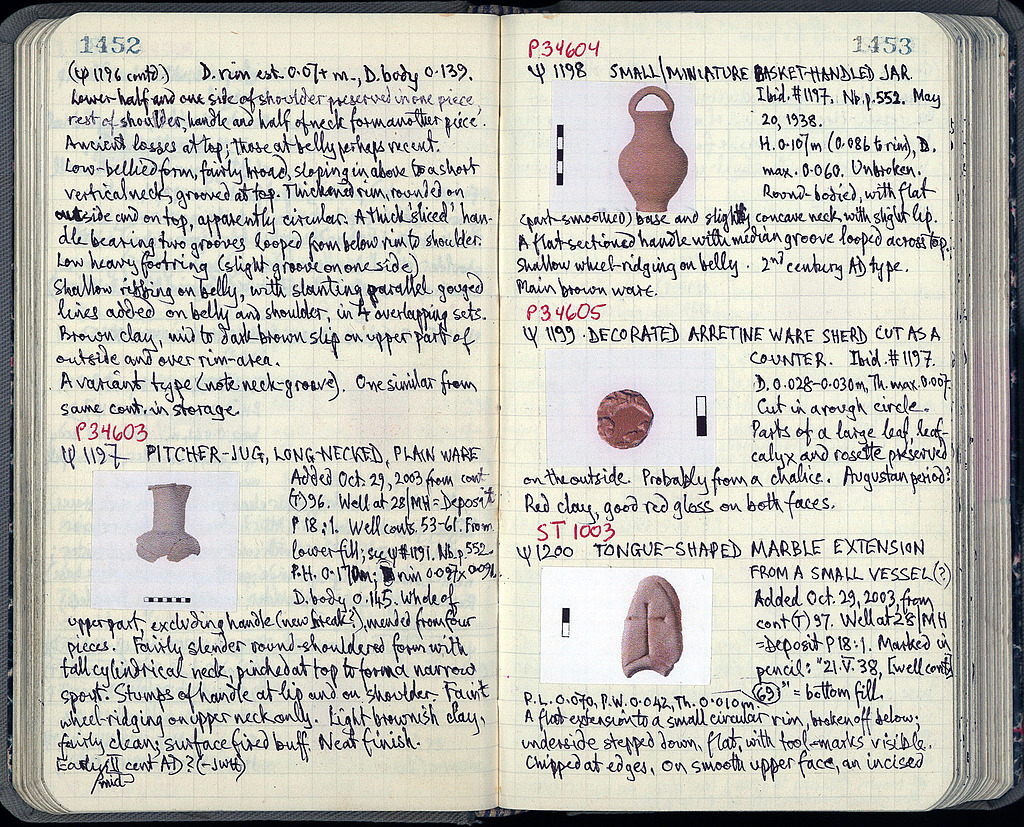 1452
(Ψ 1196 contd.) D. rim est. 0.07+ m., D. body 0.139.
Lower half and one side of shoulder preserved in one piece,
rest of shoulder, handle and half of neck form another piece.
Ancient losses at top; those at belly perhaps recent.
Low-bellied form, fairly broad, sloping in above to a short
vertical neck, grooved at top. Thickened rim, rounded on
outside and on top, apparently circular. A thick 'sliced' han-
dle bearing two grooves looped from below rim to shoulder.
Low heavy footring (slight groove on one side)
Shallow ribbing on belly, with slanting parallel gouged
lines added on belly and shoulder, in 4 overlapping sets.
Brown clay, mid to dark-brown slip on upper part of
outside and over rim-area.
A variant type (note neck-groove). One similar from
same cont. in storage.
P34603
Ψ 1197 PITCHER-JUG, LONG-NECKED, PLAIN WARE
Added Oct. 29, 2003 from cont
(T) 96. Well at 28/MH = Deposit
P 18:1. Well conts. 53-61. From
lower fill; see Ψ #1191. Nb. p. 552
P.H. 0.170m; rim 0.097 x 0.092.
D. body 0.145. Whole of
upper part, excluding handle (new break?), mended from four
pieces. Fairly slender round-shouldered form with
tall cylindrical neck, pinched at top to form a narrow
spout. Stumps of handle at lip and on shoulder. Faint
wheel-ridging on upper neck only. Light brownish clay,
fairly clean; surface fired buff. Neat finish.
Early II cent AD? (-JWH)
/mid
1453
P34604
Ψ 1198 SMALL/MINIATURE BASKET-HANDLED JAR.
Ibid. #1197. Nb. p. 552. May
20, 1938.
H. 0.107m (0.086 to rim), D.
max. 0.060. Unbroken.
Round-bodied, with flat
(part-smoothed) base and slightly concave neck, with slight lip.
A flat-sectioned handle with median groove looped across top.
Shallow wheel-ridging on belly. 2nd century AD type.
Main brown ware.
P34605
Ψ 1199. DECORATED ARRETINE WARE SHERD CUT AS A
COUNTER. Ibid. #1197.
D. 0.028-0.030m, Th. max. 0.007.
Cut in a rough circle.
Parts of a large leaf, leaf-
calyx and rosette preserved
on the outside. Probably from a chalice. Augustan period?
Red clay, good red gloss on both faces.
ST 1003
Ψ 1200 TONGUE-SHAPED MARBLE EXTENSION
FROM A SMALL VESSEL (?)
Added Oct. 29, 2003, from
cont (T) 97. Well at 28/MH
= Deposit P 18:1. Marked in
pencil: "21.V.38, [well cont]
(69)" = bottom fill.
P.L. 0.070, P.W. 0.042, Th. 0.010m.
A flat extension to a small circular rim, broken off below;
underside stepped down, flat, with tool-marks visible.
Chipped at edges. On smooth upper face, an incised